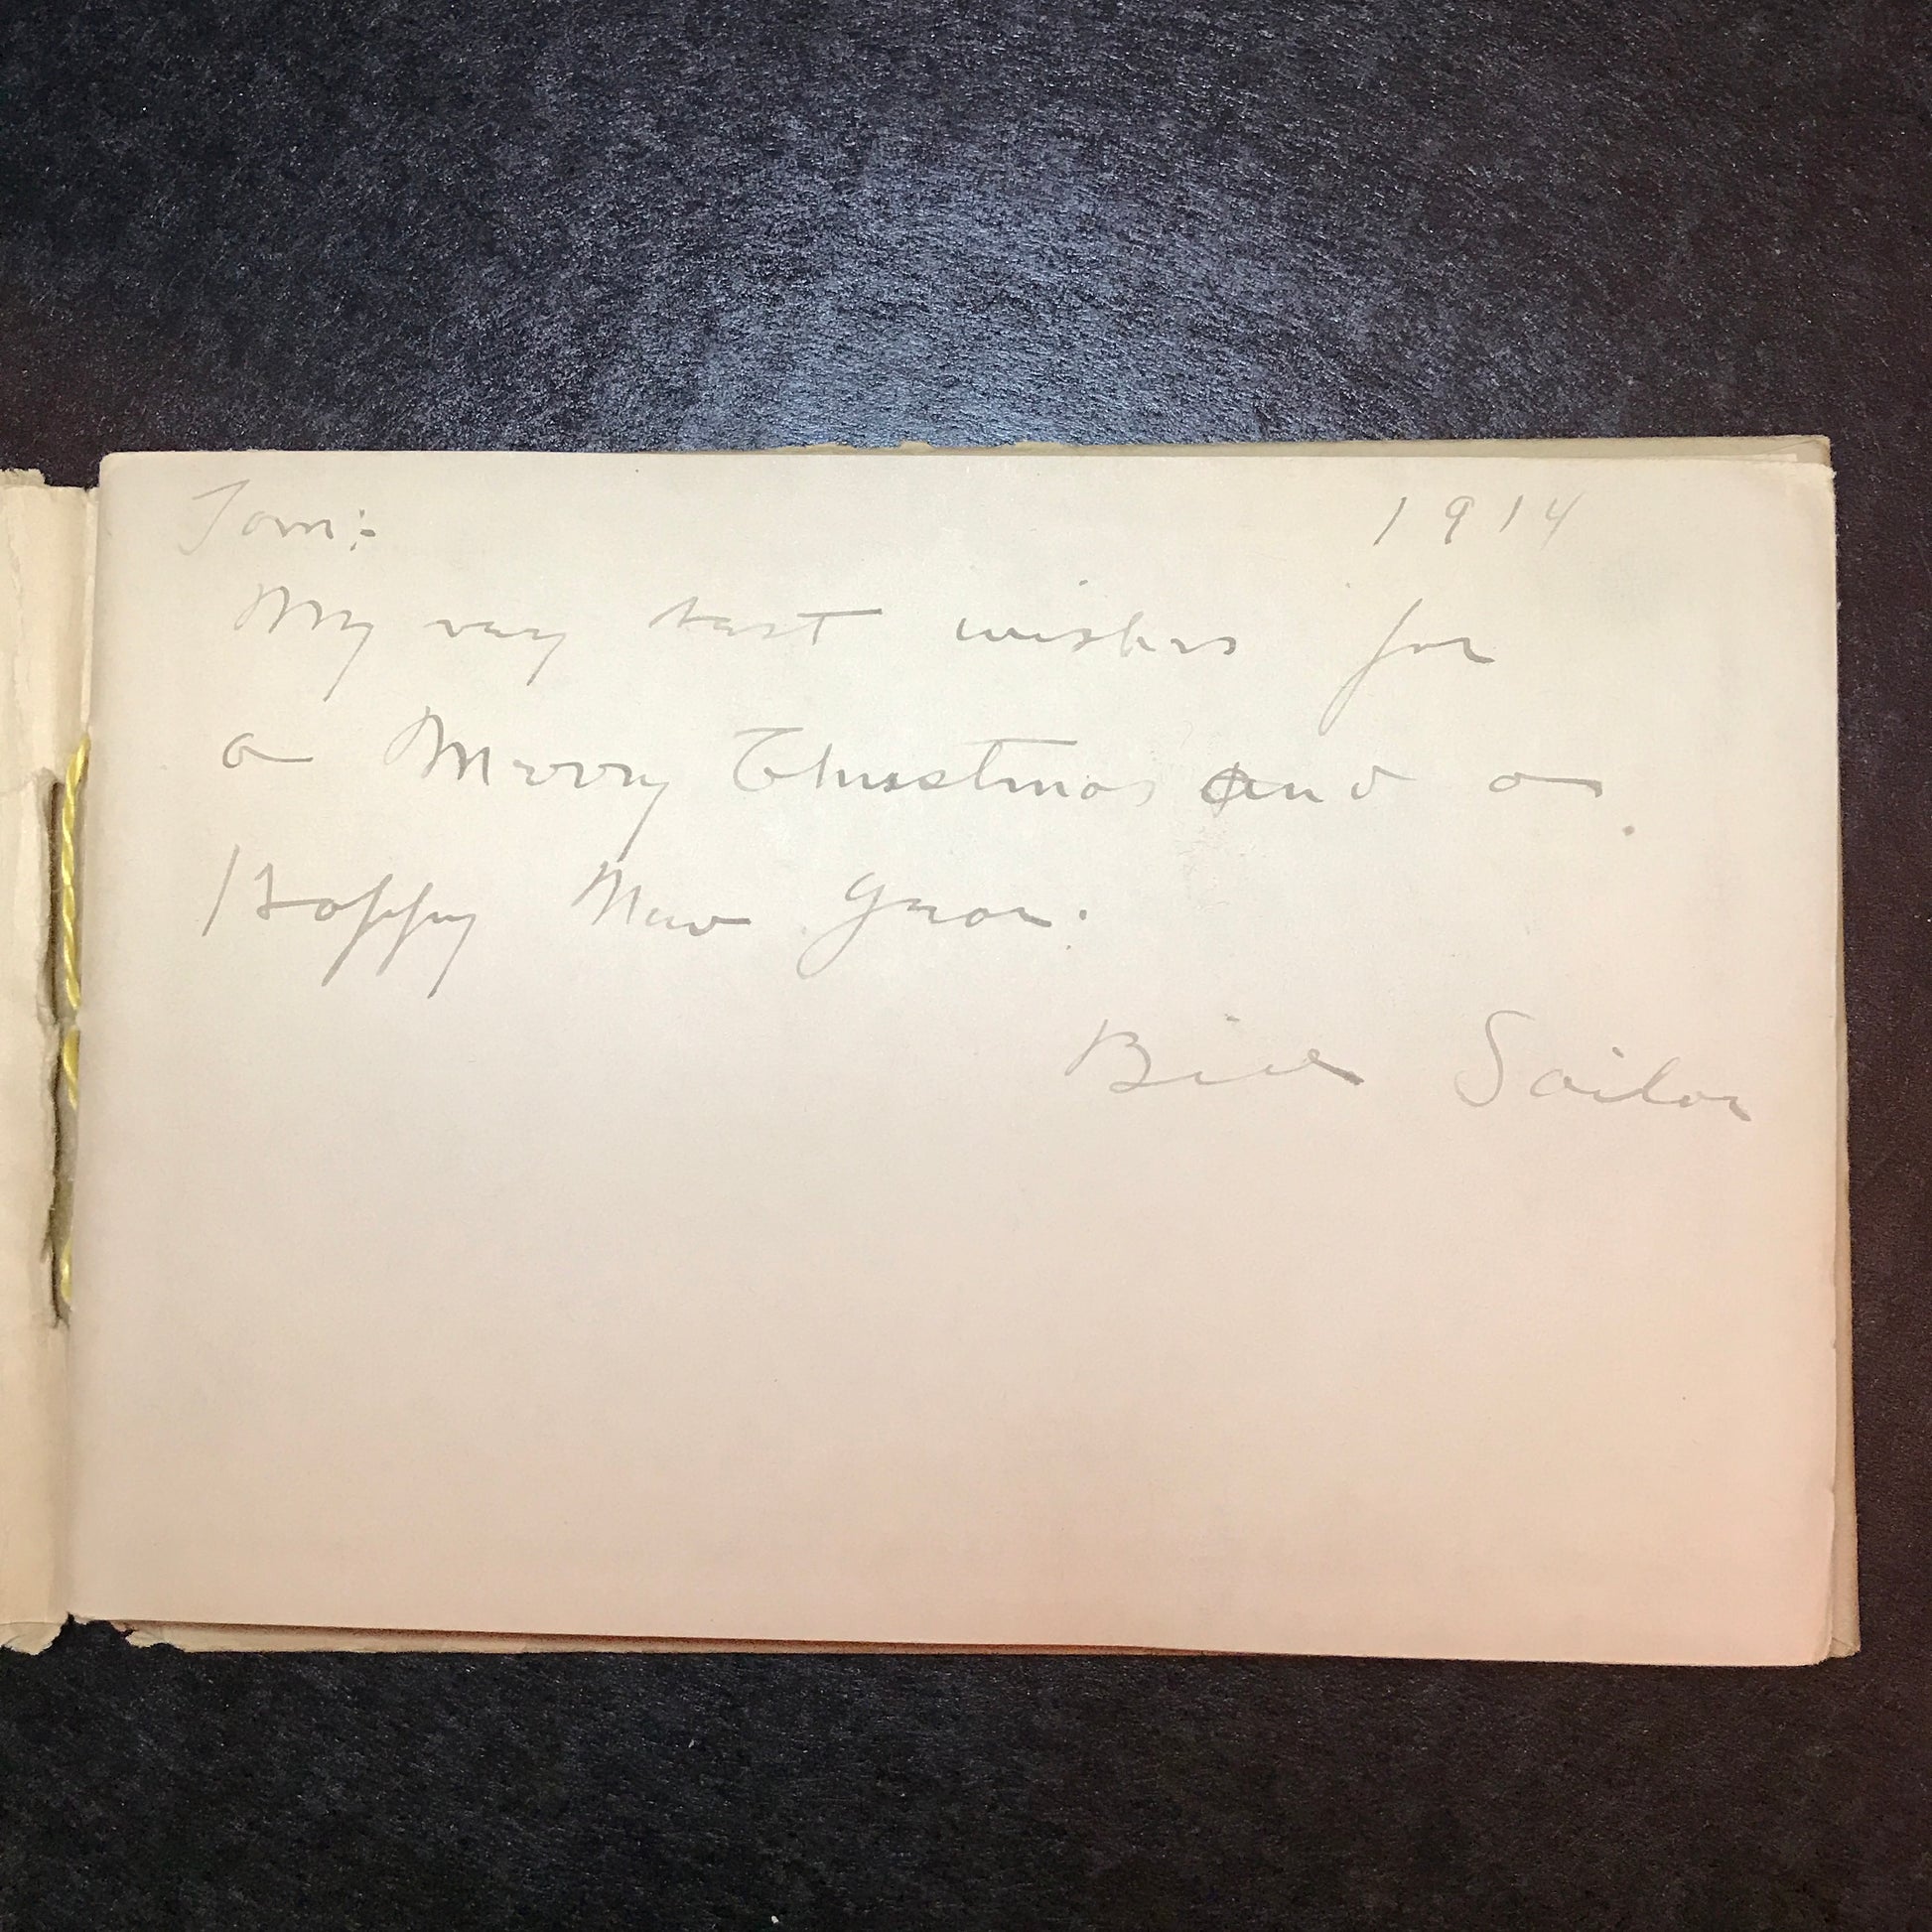 Tom: 1914
My very best wishes for
a Merry Christmas and a
Happy New Year.
Bill Sailor